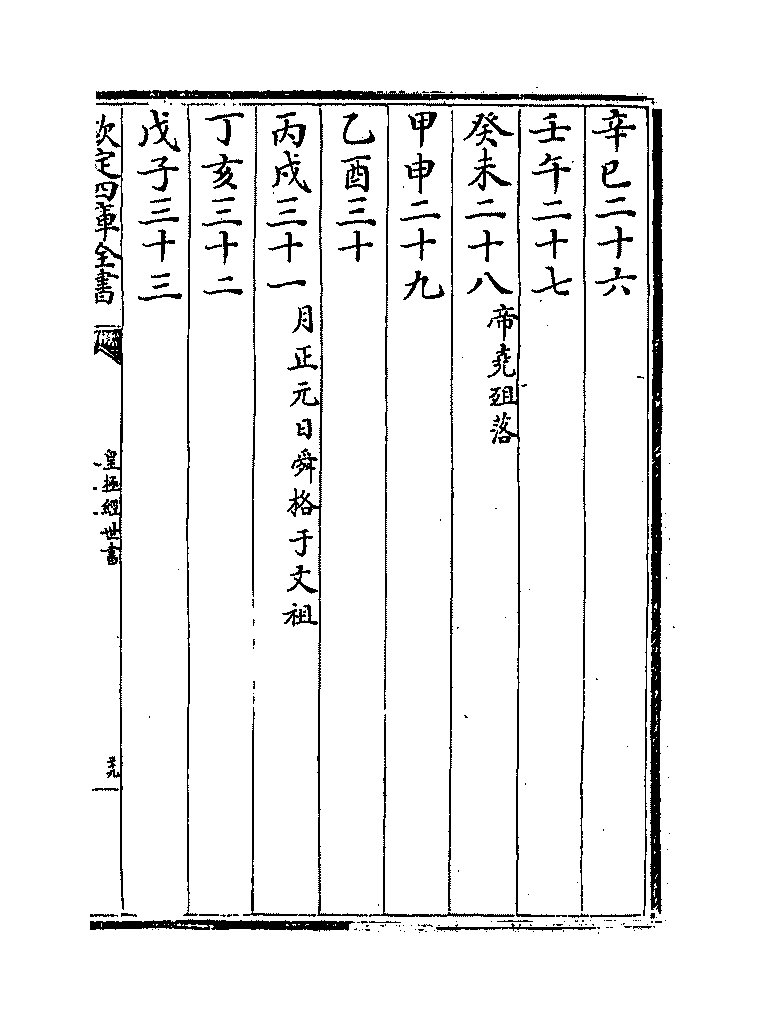 辛巳二十六
壬午二十七
癸未二十八 帝堯殂落
甲申二十九
乙酉三十
丙戌三十一 月正元日舜格于文祖
丁亥三十二
戊子三十三
欽定四庫全書 皇極經世書